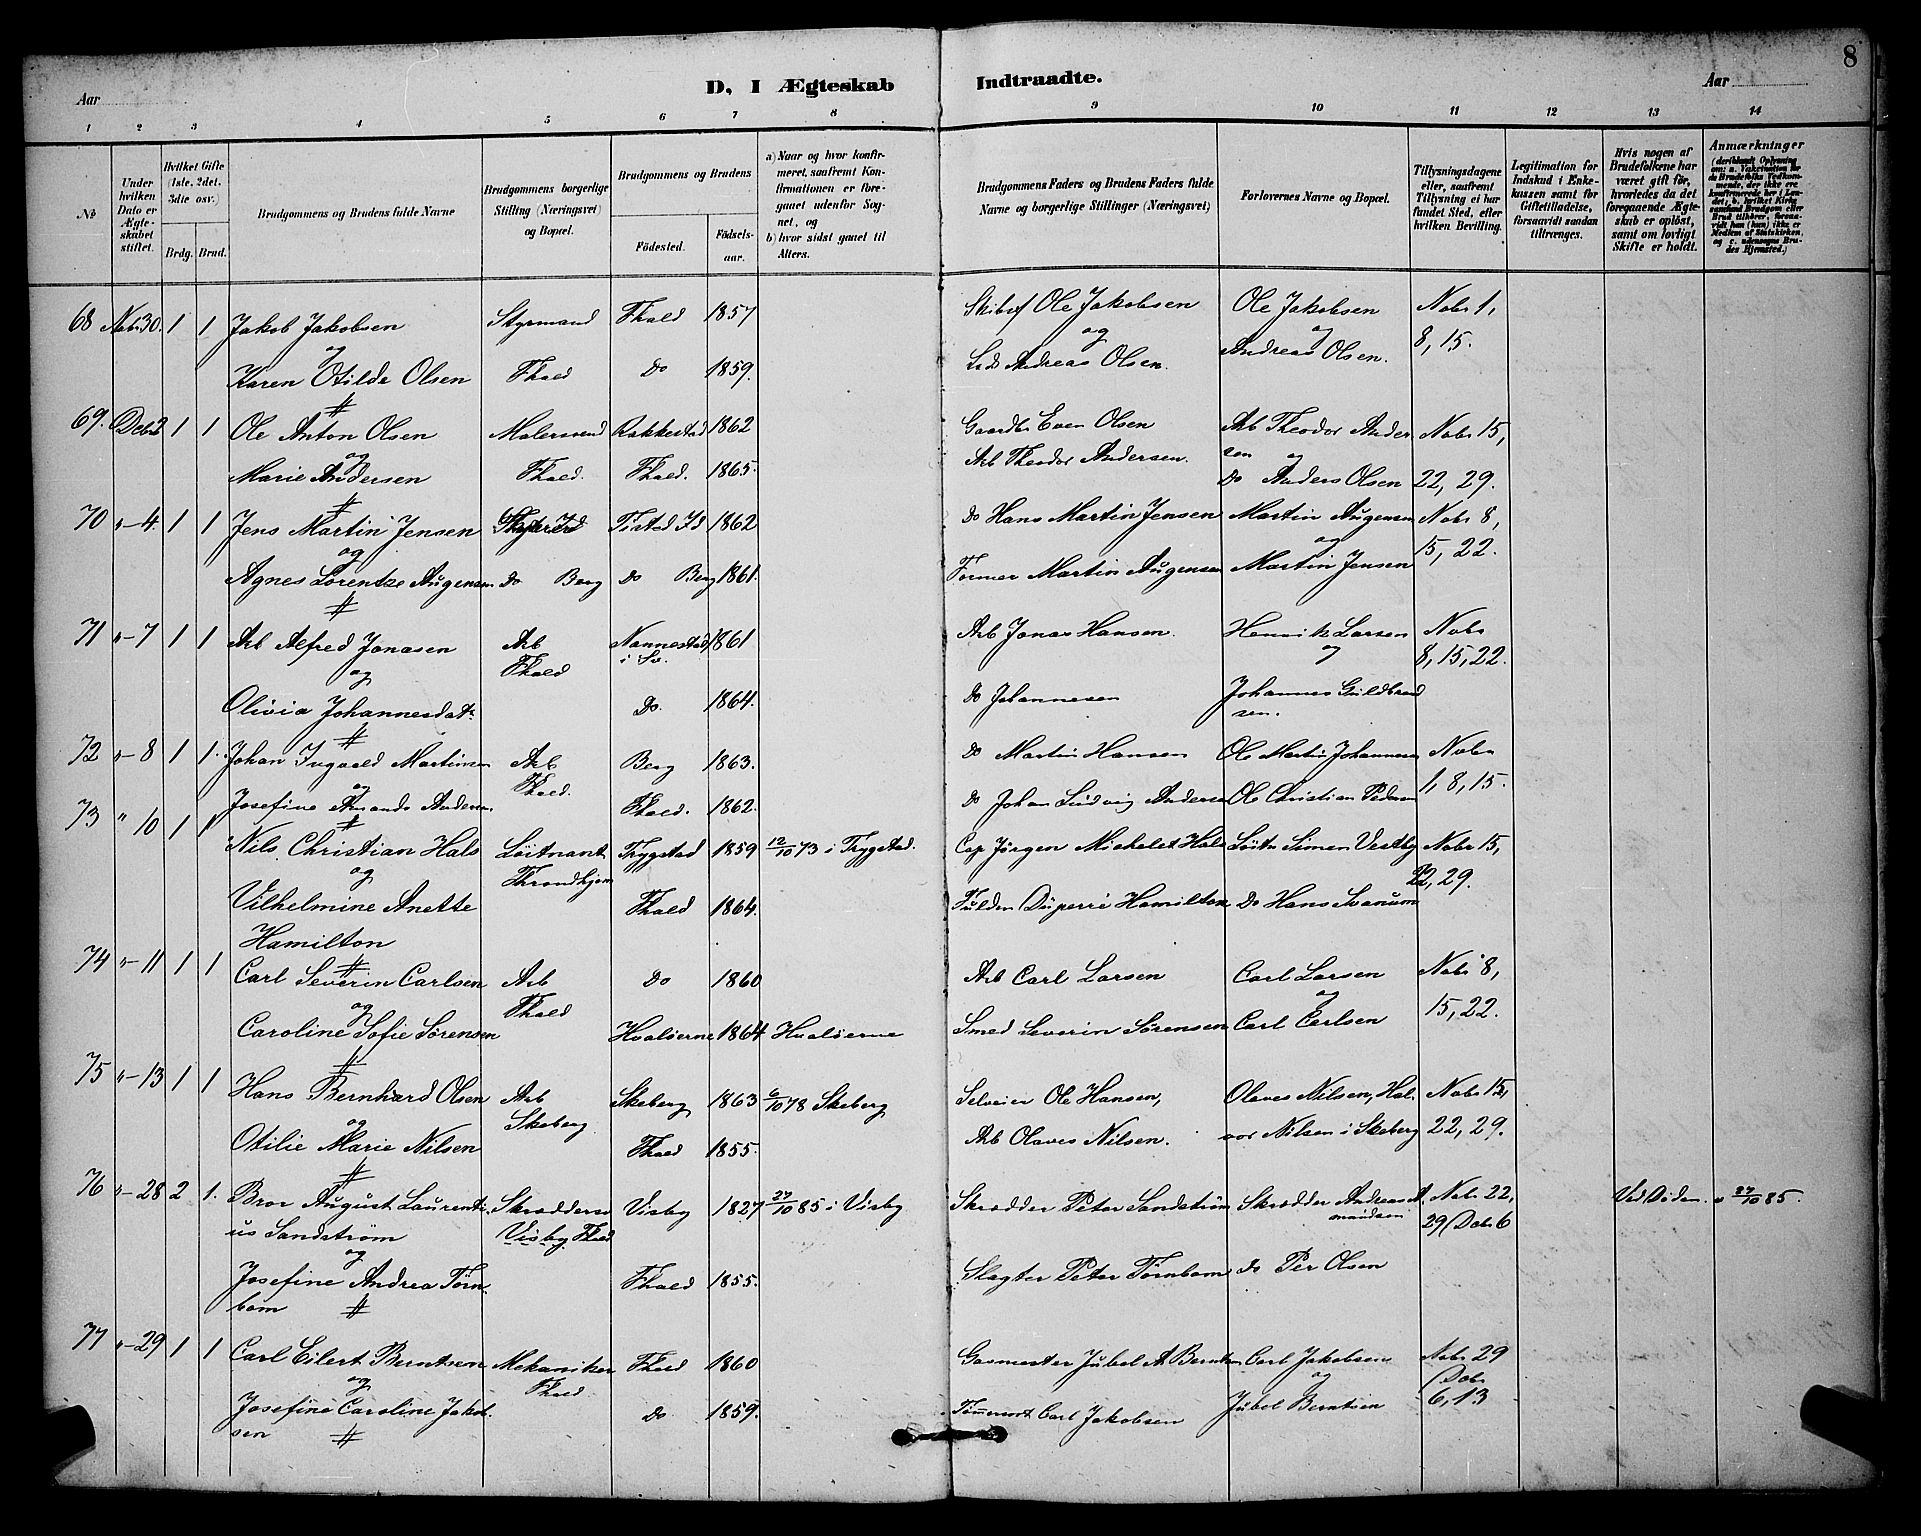 8
D, I Ægteskab Indtraadte.
Aar Aar
1 2 3 4 5 6 7 8 9 10 11 12 13 14
No
Under hvilken Dato er Ægteskabet stiftet.
Hvilket Gifte (1ste. 2det. 3die osv.)
Brdg. Brud.
Brudgommens og Brudens fulde Navne
Brudgommens borgerlige Stilling (Næringsvei) og Bopæl.
Brudgommens og Brudens
Fødested. Fødselsaar.
a) Naar og hvor konfirmeret, saafremt Konfirmationen er foregaaet udenfor Sognet, og
b) hvor sidst gaaet til Alters.
Brudgommens Faders og Brudens Faders fulde Navne og borgerlige Stillinger (Næringsvei)
Forlovernes Navne og Bopæl.
Tillysningsdagene eller, saafremt Tillysning ei har fundet Sted, efter hvilken Bevilling.
Legitimation for Indskud i Enkekassen samt for Giftetilladelse, forsaavidt saadan tiltrænges.
Hvis nogen af Brudefolkene har været gift før, hvorledes da det foregaaende Ægteskab er opløst, samt om lovligt Skifte er holdt.
Anmærkninger
68 Nobr 30. 1 1 Jakob Jakobsen Styrmand Fhald 1857 Skibsf Ole Jakobsen Ole Jakobsen Nobr 1,
og og og 8, 15.
Karen Otilde Olsen Fhald Do 1859. Andreas Olsen. Andreas Olsen.
69. Debr 2 1 1 Ole Anton Olsen Malersvend Rakkestad 1862 Gaardbr Even Olsen Arb Theodor Ander Nobr 15,
og sen og
Marie Andersen Fhald. Fhald. 1865. Arb Theodor Andersen. Do Anders Olsen 22, 29.
70 "-4. 1 1 Jens Martin Jensen Tisted Id 1862 Do Hans Martin Jensen Martin Augensen Nobr 8,
og og 15, 22.
Agnes Lorentze Augensen Do Berg Do Berg 1861. Former Martin Augensen Martin Jensen
71 "-7 1 1 Arb Alfred Jonasen Arb Nannestad 1861 Arb Jonas Hansen. Henrik Larsen Nobr
og Fhald i Sv. og 8, 15, 22.
Olivia Johannesdatr Do. 1864. Do Johannesen Johannes Guldbrand
sen.
72 "-8 1 1. Johan Ingvald Martinsen Arb Berg 1863. Do Martin Hansen Ole Martin Johannesen Nobr
og Fhald. 1, 8, 15.
Josefine Amanda Andersen Fhald. 1862. Do Johan Ludvig Andersen Ole Christian Pedersen
73 " 10 1 1 Nils Christian Hals Löitnant Trygstad 1859 12/10 73 i Trygstad. Cap Jørgen Michelet Hals Löitn Simen Vestby Nobr 15,
og Throndhjem 22, 29.
Vilhelmine Anette Fhald 1864. Düperré Hamilton Do Hans Svanum
Hamilton
74 "-11 1 1 Carl Severin Carlsen Arb Do 1860 Arb Carl Larsen Carl Larsen Nobr 8,
og Fhald og 15, 22.
Caroline Sofie Sørensen Hvaløerne 1864 Hvaløerne Smed Severin Sørensen Carl Carlsen
75 "-13 1 1 Hans Bernhard Olsen Arb Skeberg 1863 6/10 78 Skeberg Selveier Ole Hansen, Olaves Nilsen, Hal- Nobr 15,
og Skeberg
Otilie Marie Nilsen Fhald 1855. Arb Olaves Nilsen. vor Nilsen i Skeberg 22, 29.
76 "-28 2 1. Bror August Laurenti- Skrædder Visby 1827 27/10 85 i Visby Skrædder Peter Sandstrøm Skrædder Andreas A- Nobr 22, Ved Døden 27/10 85.
us Sandstrøm Visby Fhald mundsen 29, Debr 6
og
Josefine Andrea Törn- Fhald 1855. Slagter Peter Törnbom Do Per Olsen
bom
77 "-29 1 1 Carl Eilert Berntsen Mekaniker Fhald 1860 Gasmester Jubel A Berntsen Carl Jakobsen Nobr 29
og Fhald og Debr
Josefine Caroline Jakob- Do 1859. Carl Jakobsen Jubel Berntsen 6, 13
sen